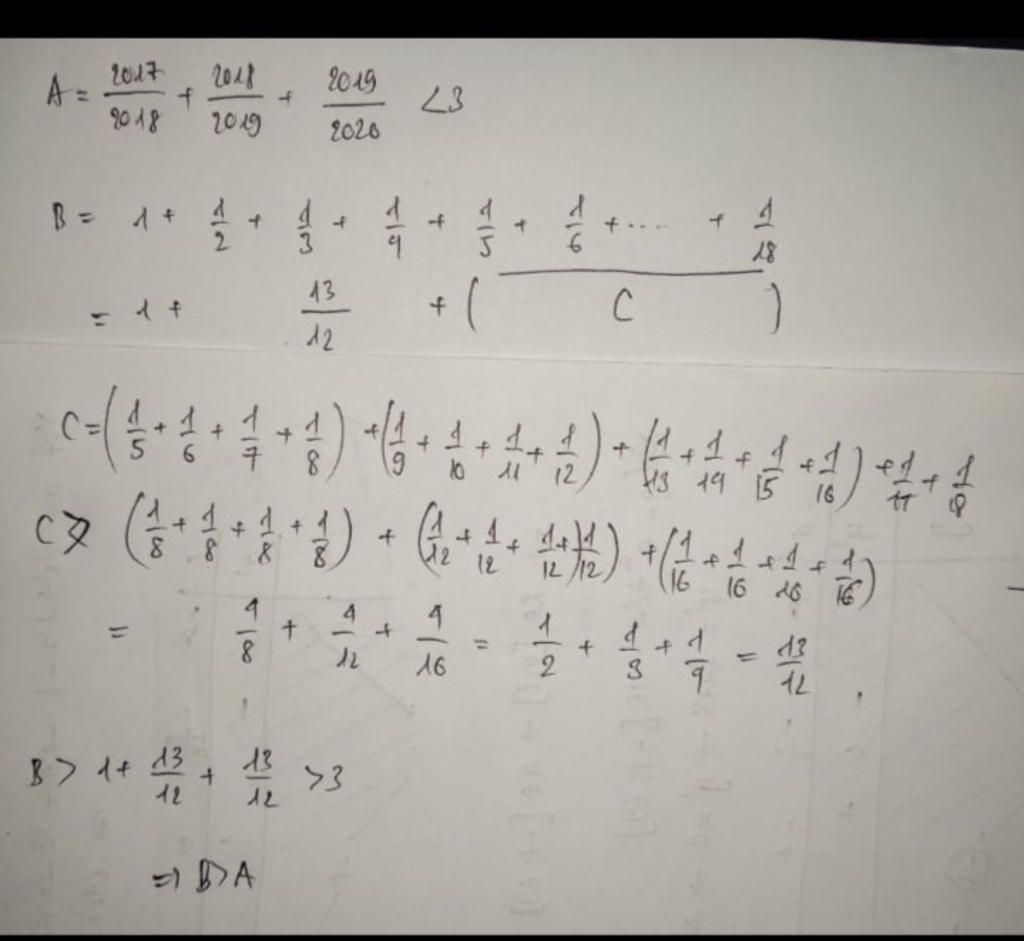 A = 2017/2018 + 2018/2019 + 2019/2020 < 3
B = 1 + 1/2 + 1/3 + 1/4 + 1/5 + 1/6 + .... + 1/18
= 1 + 13/12 + ( C )
C = (1/5 + 1/6 + 1/7 + 1/8) + (1/9 + 1/10 + 1/11 + 1/12) + (1/13 + 1/14 + 1/15 + 1/16) + 1/17 + 1/18
C > (1/8 + 1/8 + 1/8 + 1/8) + (1/12 + 1/12 + 1/12 + 1/12) + (1/16 + 1/16 + 1/16 + 1/16)
= 4/8 + 4/12 + 4/16 = 1/2 + 1/3 + 1/4 = 13/12
B > 1 + 13/12 + 13/12 > 3
=> B > A